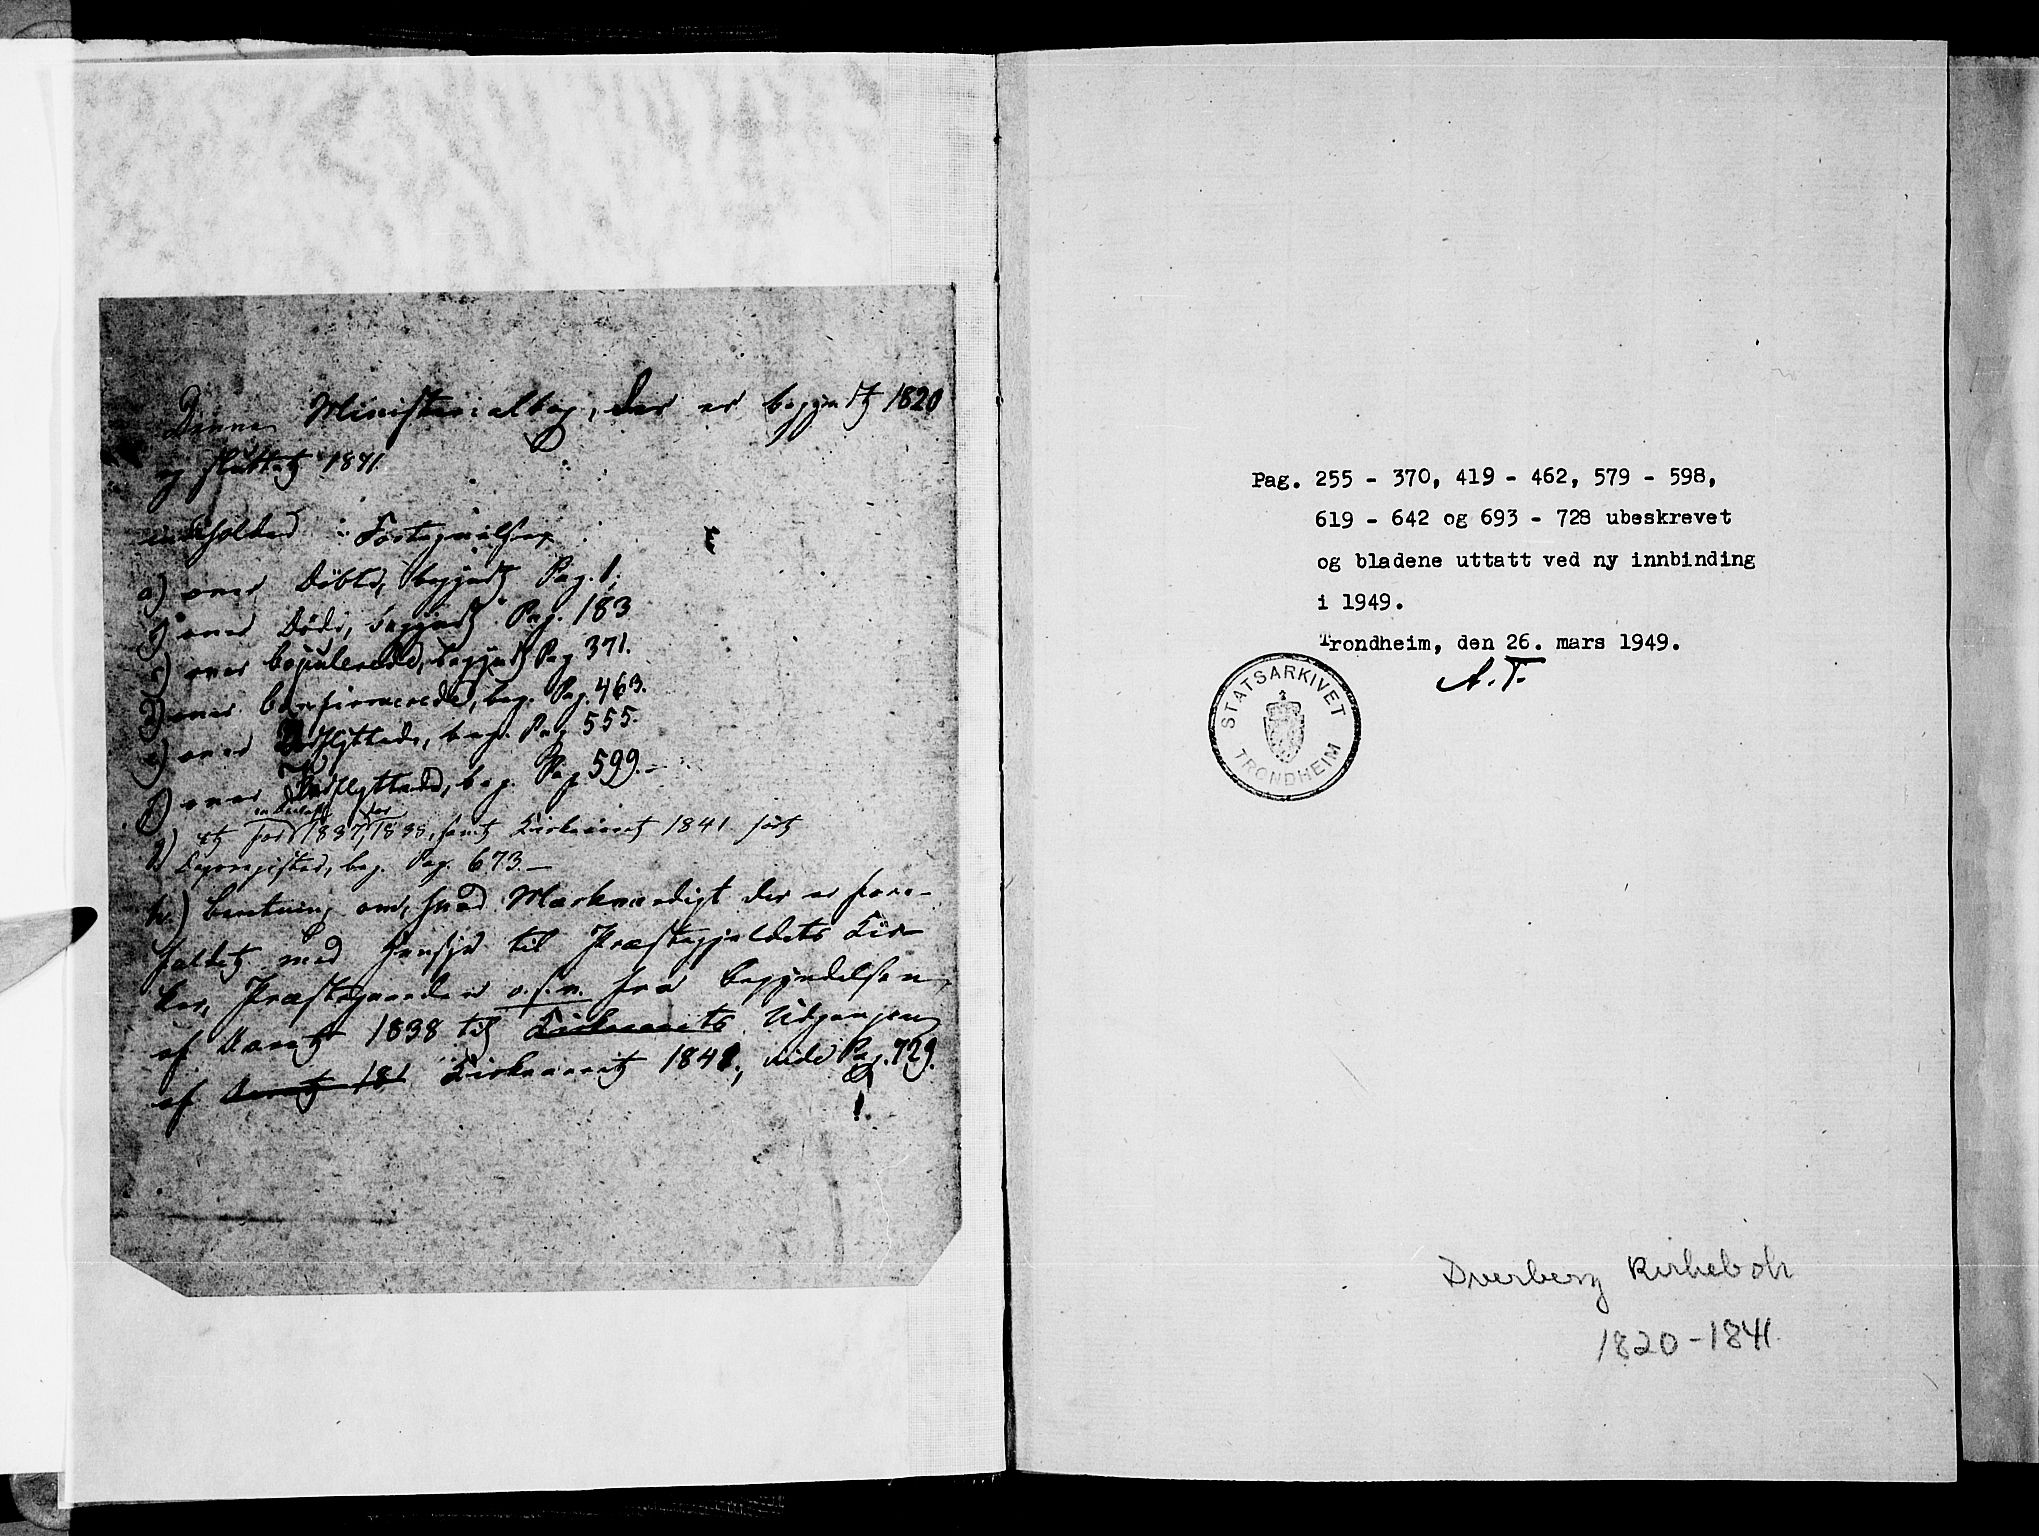 Denne Ministerialbog, der er begyndt 1820
og sluttet 1841
indholder Fortegnelse
a) over Døbte, begyndt Pag. 1;
over Døde, begyndt Pag. 183
c) over Copulerede, begyndt Pag 371.
d) over Confirmerede, beg. Pag. 463.
e) over flyttede, beg. Pag 555.
f) over flyttede, beg. Pag 599.–
g) et for 1837, for 1838, samt Kirkeaaret 1841 ført
Dagregister, beg. Pag. 673.–
h) Beretning om, hvad Mærkværdigt der er fore-
faldet med Hensyn til Præstegjeldets Kir-
ker, Præstegaarden o.s.v. fra Begyndelsen
af Aaret 1838 til Kirkeaarets Udgangen
af Aaret 181 Kirkeaaret 1841, vide Pag. 729.
Pag. 255 - 370, 419 - 462, 579 - 598,
619 - 642 og 693 - 728 ubeskrevet
og bladene uttatt ved ny innbinding
i 1949.
Trondheim, den 26. mars 1949.
A.T.
STATSARKIVET
TRONDHEIM
Dverberg Kirkebok
1820-1841.